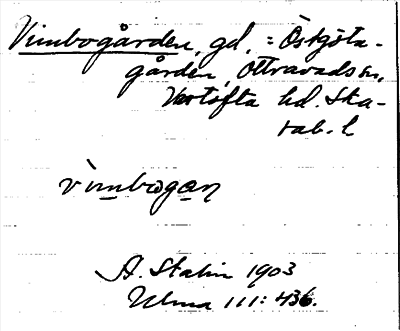 Vimbogården, gd, = Östgöta-
gården, Ottravads sn,
Vartofta hd. Ska-
rab. l
vimbogan
A. Stalin 1903
Ulma 111: 436.